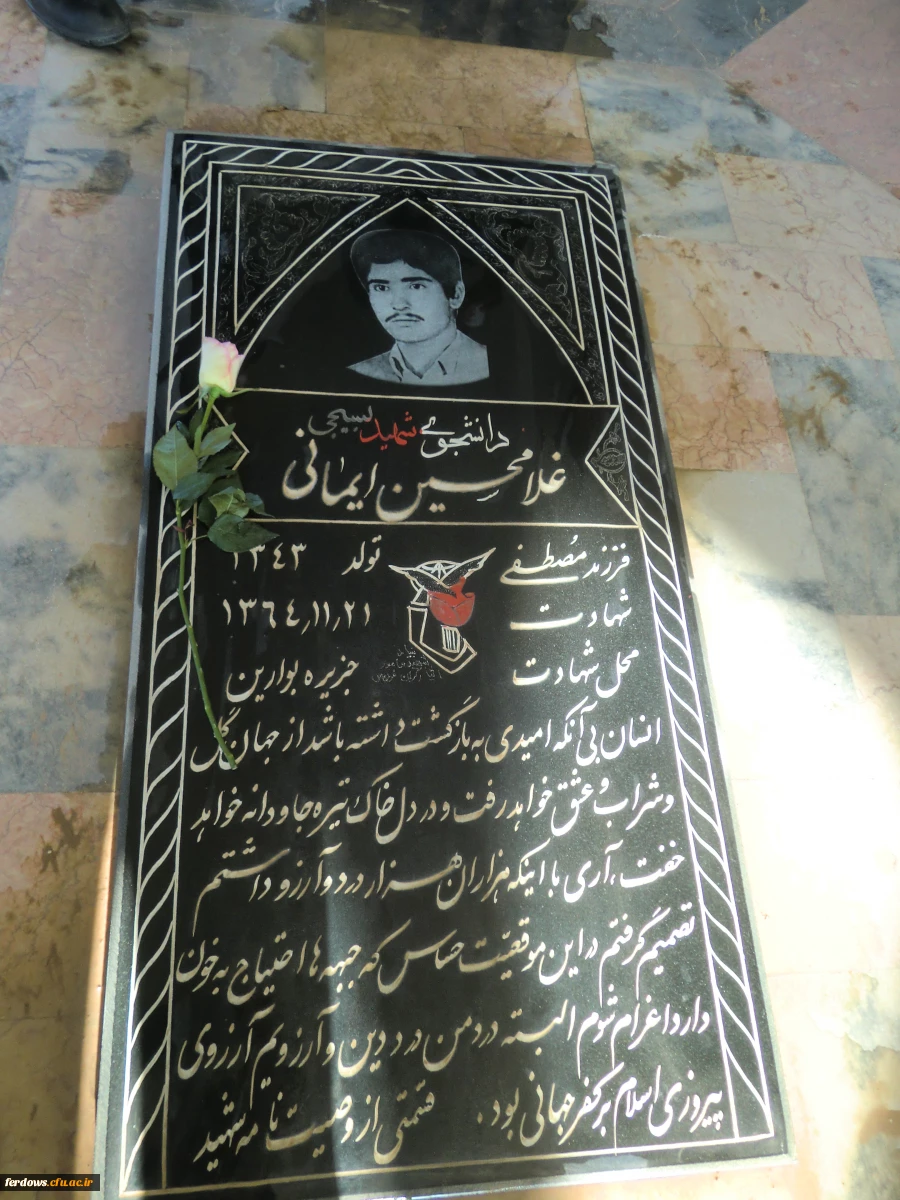 دانشجوی شهید بسیجی
غلامحسین ایمانی
فرزند مُصطفی تولد ۱۳٤۳
شهادت ۱۳٦٤٫۱۱٫۲۱
محل شهادت جزیره بوارین
انسان بی آنکه امیدی به بازگشت داشته باشد از جهان گل
و شراب و عشق خواهد رفت و در دل خاک تیره جاودانه خواهد
خفت، آری با اینکه هزاران هزار درد و آرزو داشتم
تصمیم گرفتم در این موقعیّت حساس که جبهه ها احتیاج به خون
دارد اعزام شوم البته درد من درد دین و آرزویم آرزوی
پیروزی اسلام بر کفر جهانی بود. قسمتی از وصیت نامه شهید
ferdows.cfu.ac.ir